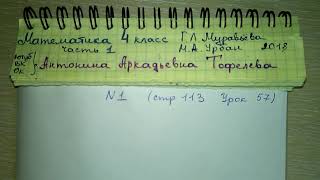 Математика 4 класс Г.Л. Муравьёва
часть 1 М.А. Урбан 2018
ютуб
ВК
ОК
Антонина Аркадьевна Тофелева
N1 (стр 113 Урок 57)